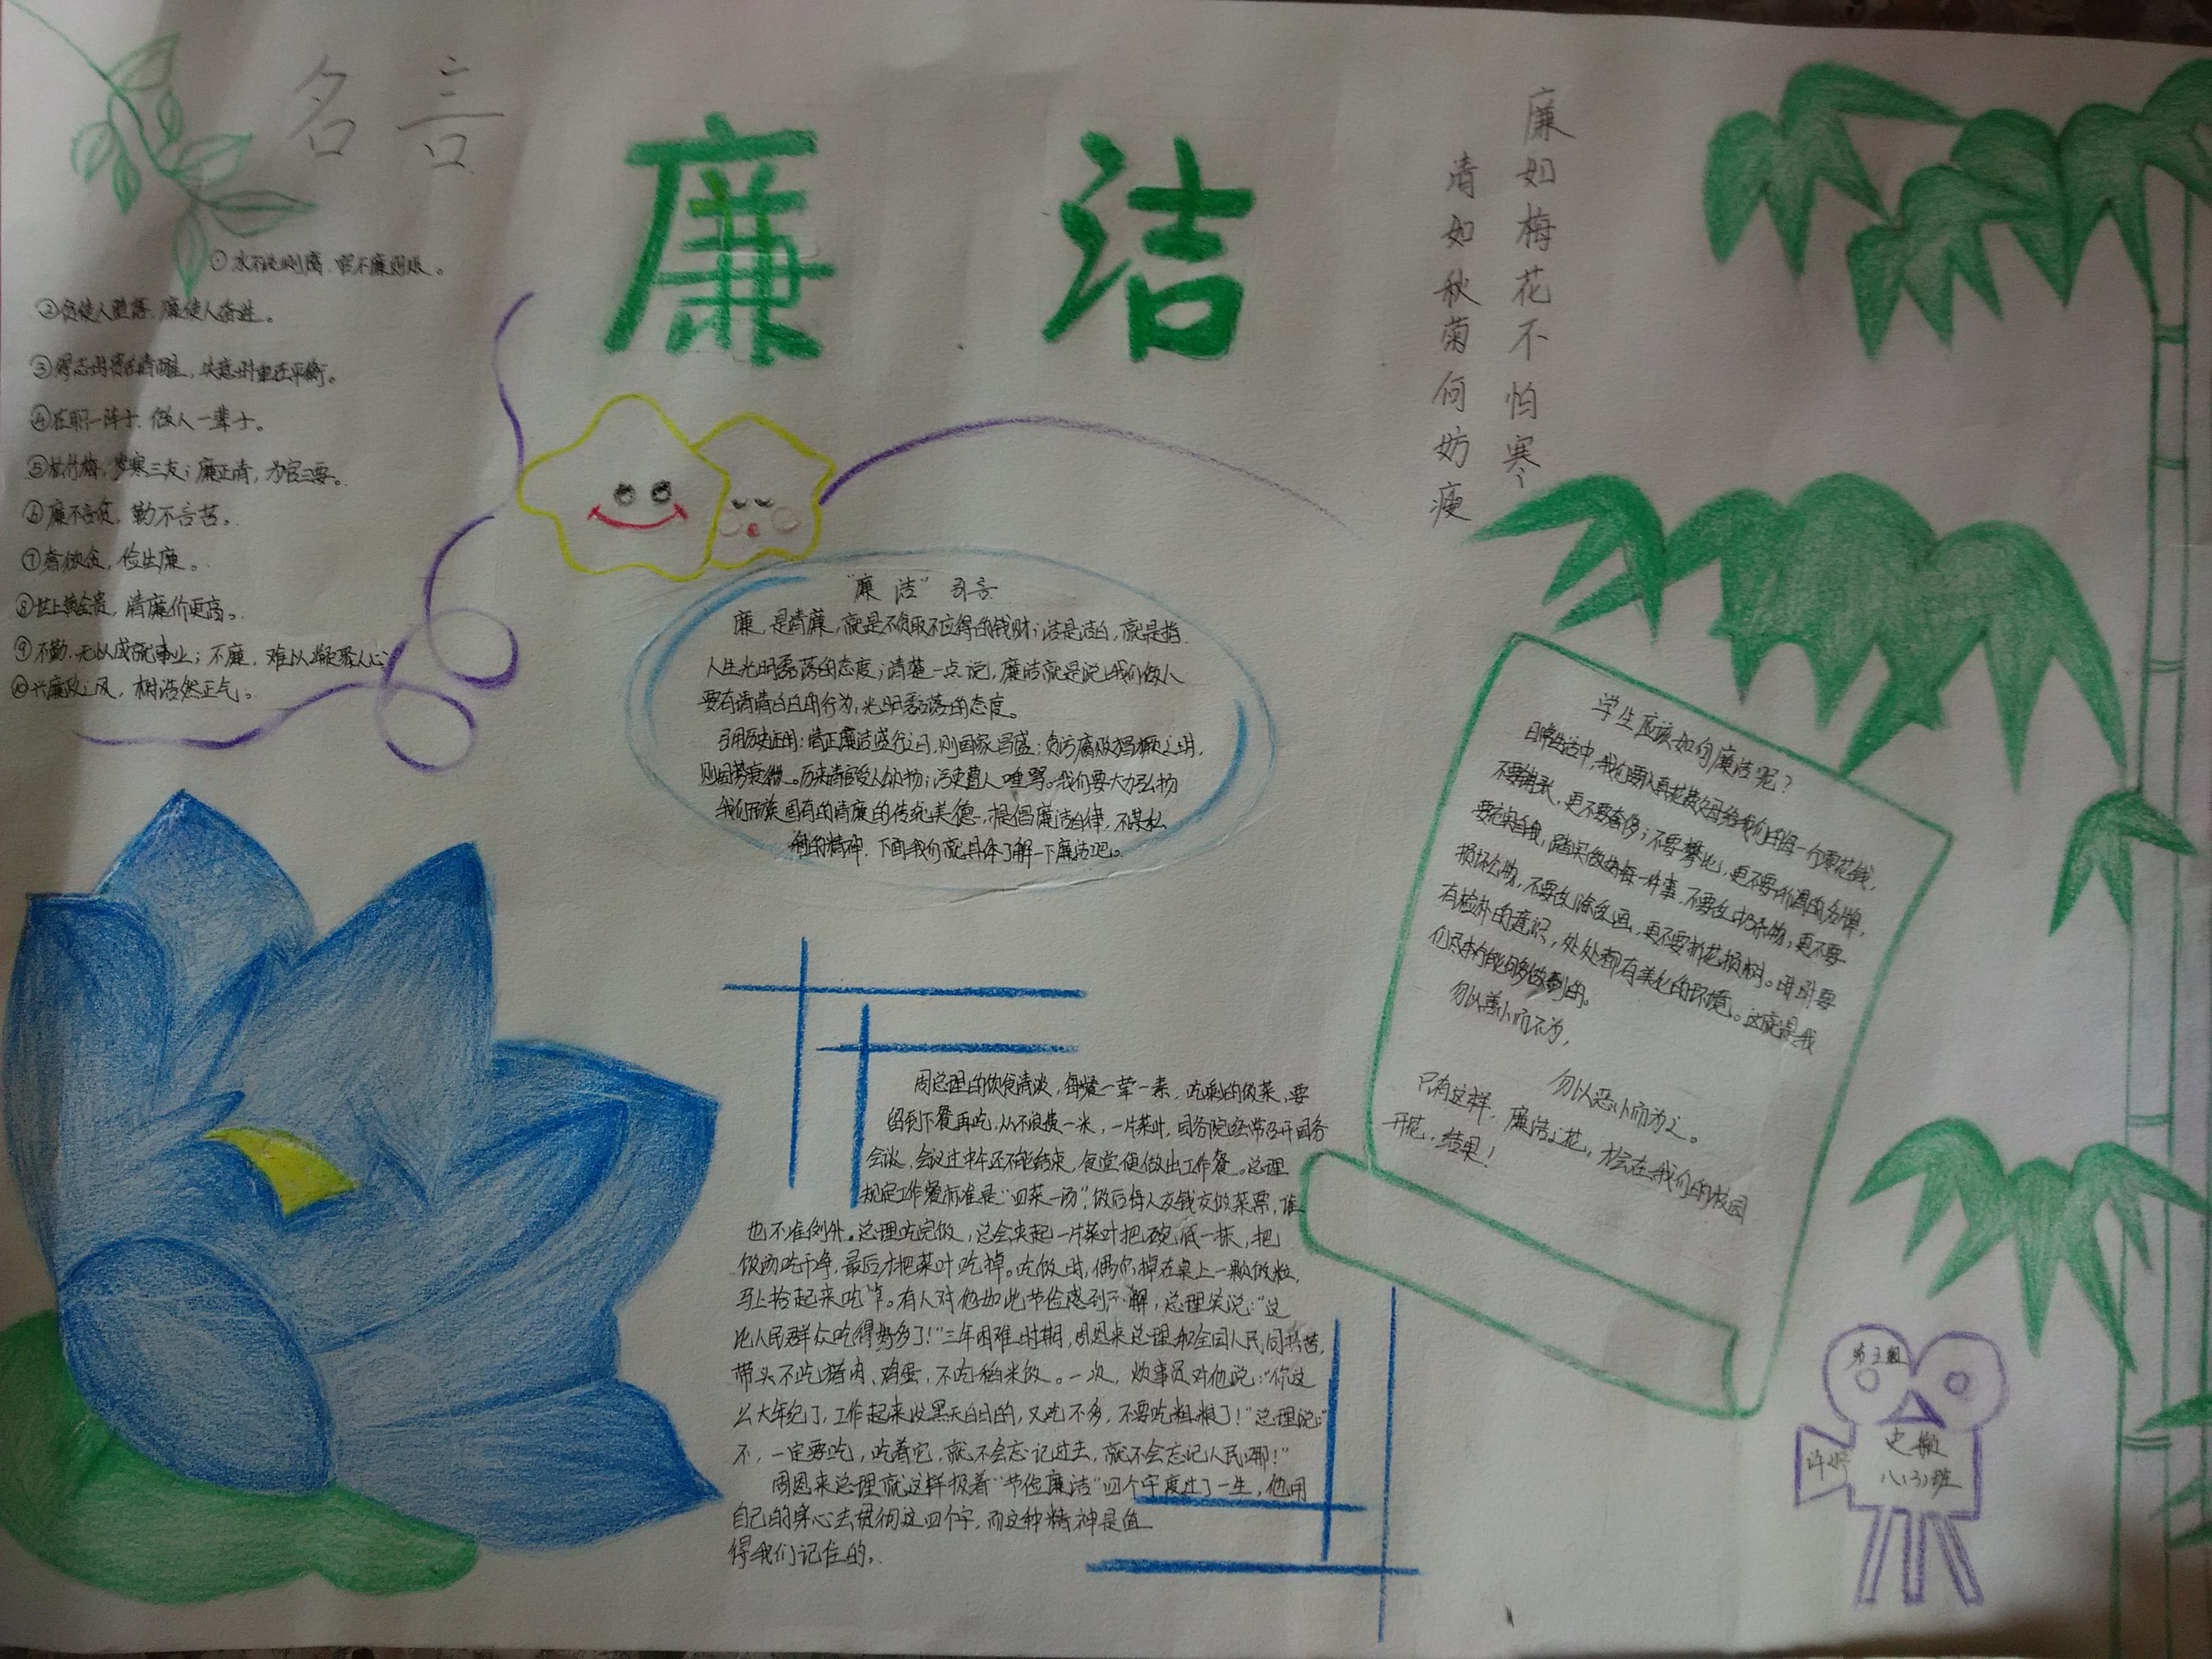 名言
廉洁
廉如梅花不怕寒
清如秋菊何妨瘦
①水不流则腐，官不廉则败。
②贪使人堕落，廉使人奋进。
③得志时贵在清醒，失意时重在平衡。
④在职一阵子，做人一辈子。
⑤松竹梅，岁寒三友；廉正清，为官三要。
⑥廉不言贫，勤不言苦。
⑦奢做贪，俭出廉。
⑧世上黄金贵，清廉价更高。
⑨不勤，无以成就事业；不廉，难以凝聚人心
⑩兴廉政之风，树浩然正气。
"廉洁"引言
廉，是清廉，就是不贪取不应得的钱财；洁是洁白，就是指
人生光明磊落的态度；清楚一点说，廉洁就是说我们做人
要有清清白白的行为，光明磊落的态度。
引用历史证明：清正廉洁盛行之日，则国家昌盛；贪污腐败猖獗之时，
则国势衰微。历来清官受人仰扬；污吏遭人唾骂。我们要大力弘扬
我们民族固有的清廉的传统美德，提倡廉洁自律，不谋私
利的精神，下面我们就具体了解一下廉洁吧。
学生应该如何廉洁呢？
日常生活中，我们要认真花费父母给我们的每一个零花钱，
不要铺张，更不要奢侈；不要攀比，更不要所谓的名牌，
要充实自我，踏实做好每一件事，不要乱扔杂物，更不要
损坏公物，不要乱涂乱画，更不要折花损树。时时要
有检朴的意识，处处都有美化的环境。这就是我
们尽本能够做到的。
勿以善小而不为，
勿以恶小而为之。
只有这样，廉洁之花，才会在我们的校园
开花，结果！
周总理的饮食清淡，每餐一荤一素，吃剩的饭菜，要
留到下餐再吃，从不浪费一米，一片菜叶，国务院经常召开国务
会议，会议过中午还不能结束，食堂便做出工作餐。总理
规定工作餐标准是"四菜一汤"，饭后每人交钱交饭菜票，谁
也不准例外。总理吃完饭，总会夹起一片菜叶把碗底一抹，把
饭汤吃干净，最后才把菜叶吃掉。吃饭时，偶尔掉在桌上一颗饭粒，
马上拾起来吃掉。有人对他如此节俭感到不解，总理笑说："这
比人民群众吃得好多了！"三年困难时期，周恩来总理和全国人民同甘苦，
带头不吃猪肉、鸡蛋，不吃稻米饭。一次，炊事员对他说："你这
么大年纪了，工作起来没黑天白日的，又吃不多，不要吃粗粮了！"总理说："
不，一定要吃，吃着它，就不会忘记过去，就不会忘记人民哪！"
周恩来总理就这样抱着"节俭廉洁"四个字度过了一生，他用
自己的身心去贯彻这四个字，而这种精神是值
得我们记住的。
八(3)班